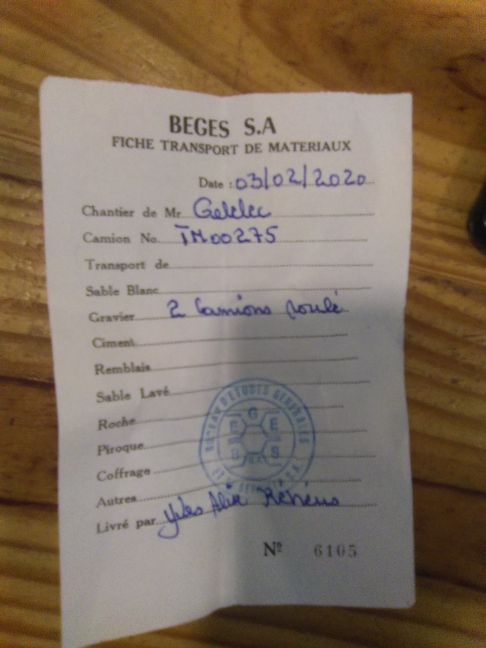 BEGES S.A
FICHE TRANSPORT DE MATERIAUX
Date : 03/02/2020
Chantier de Mr Gelelec
Camion No. TM00275
Transport de
Sable Blanc
Gravier 2 Camions roulé
Ciment
Remblais
Sable Lavé
Roche
Piroque
Coffrage
Autres
Livré par Yves Alix
BUREAU D'ETUDES GENERALES
N° 6105